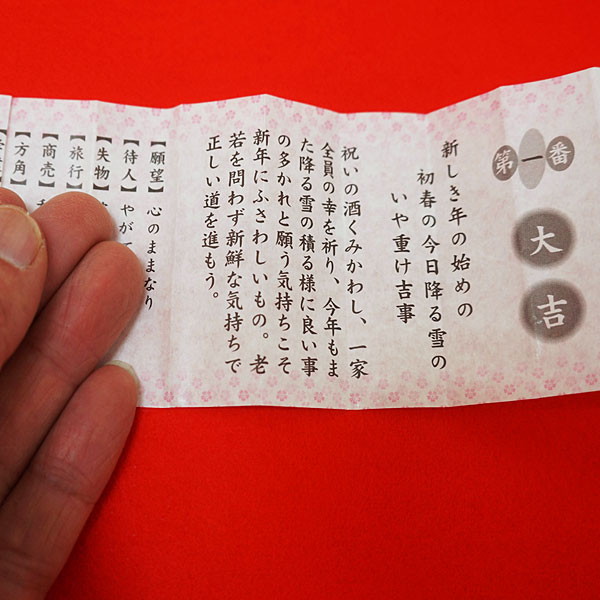 第一番
大吉
新しき年の始めの
初春の今日降る雪の
いや重け吉事
祝いの酒くみかわし、一家
全員の幸を祈り、今年もま
た降る雪の積る様に良い事
の多かれと願う気持ちこそ
新年にふさわしいもの。老
若を問わず新鮮な気持ちで
正しい道を進もう。
【願望】心のままなり
【待人】やが
【失物】
【旅行】
【商売】
【方角】